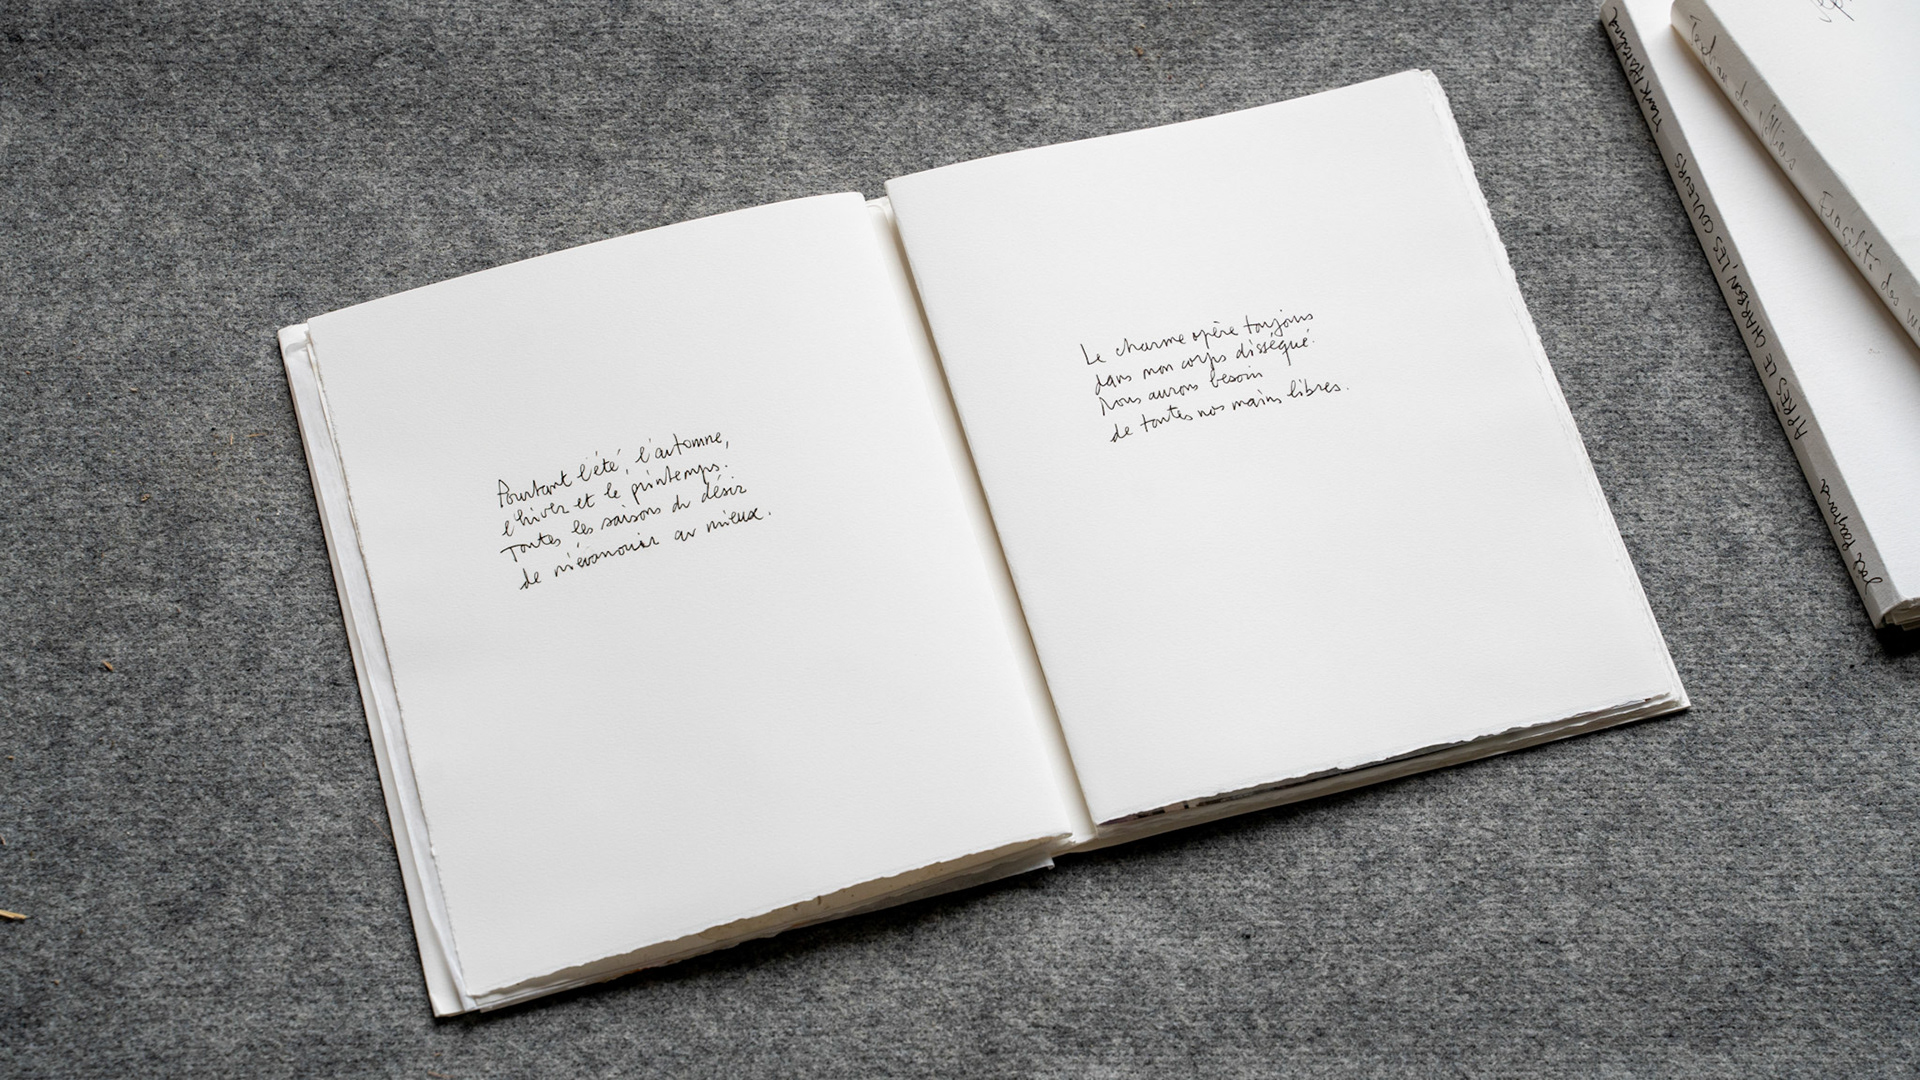 Pourtant l'été, l'automne,
l'hiver et le printemps.
Toutes les saisons du désir
de m'évanouir au mieux.
Le charme opère toujours
dans mon corps disséqué.
Nous aurons besoin
de toutes nos mains libres.
APRÈS LE CHARBON, LES COULEURS
de
Fragilité des